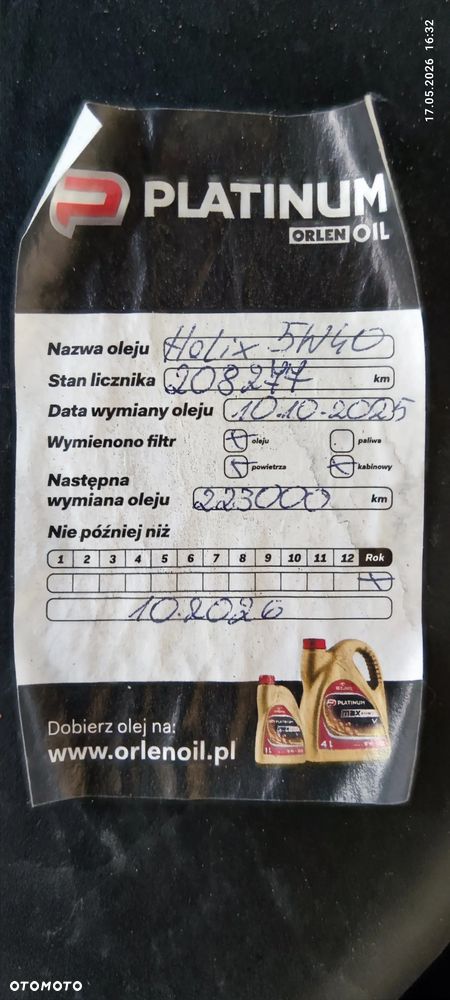 17.05.2026 16:32
PLATINUM
ORLEN OIL
Nazwa oleju Helix 5W40
Stan licznika 208277 km
Data wymiany oleju 10.10.2025
Wymieniono filtr X oleju paliwa
X powietrza X kabinowy
Następna
wymiana oleju 223000 km
Nie później niż
1 2 3 4 5 6 7 8 9 10 11 12 Rok
X
10.2026
Dobierz olej na:
www.orlenoil.pl
PLATINUM
1L
PLATINUM
4L
OTOMOTO